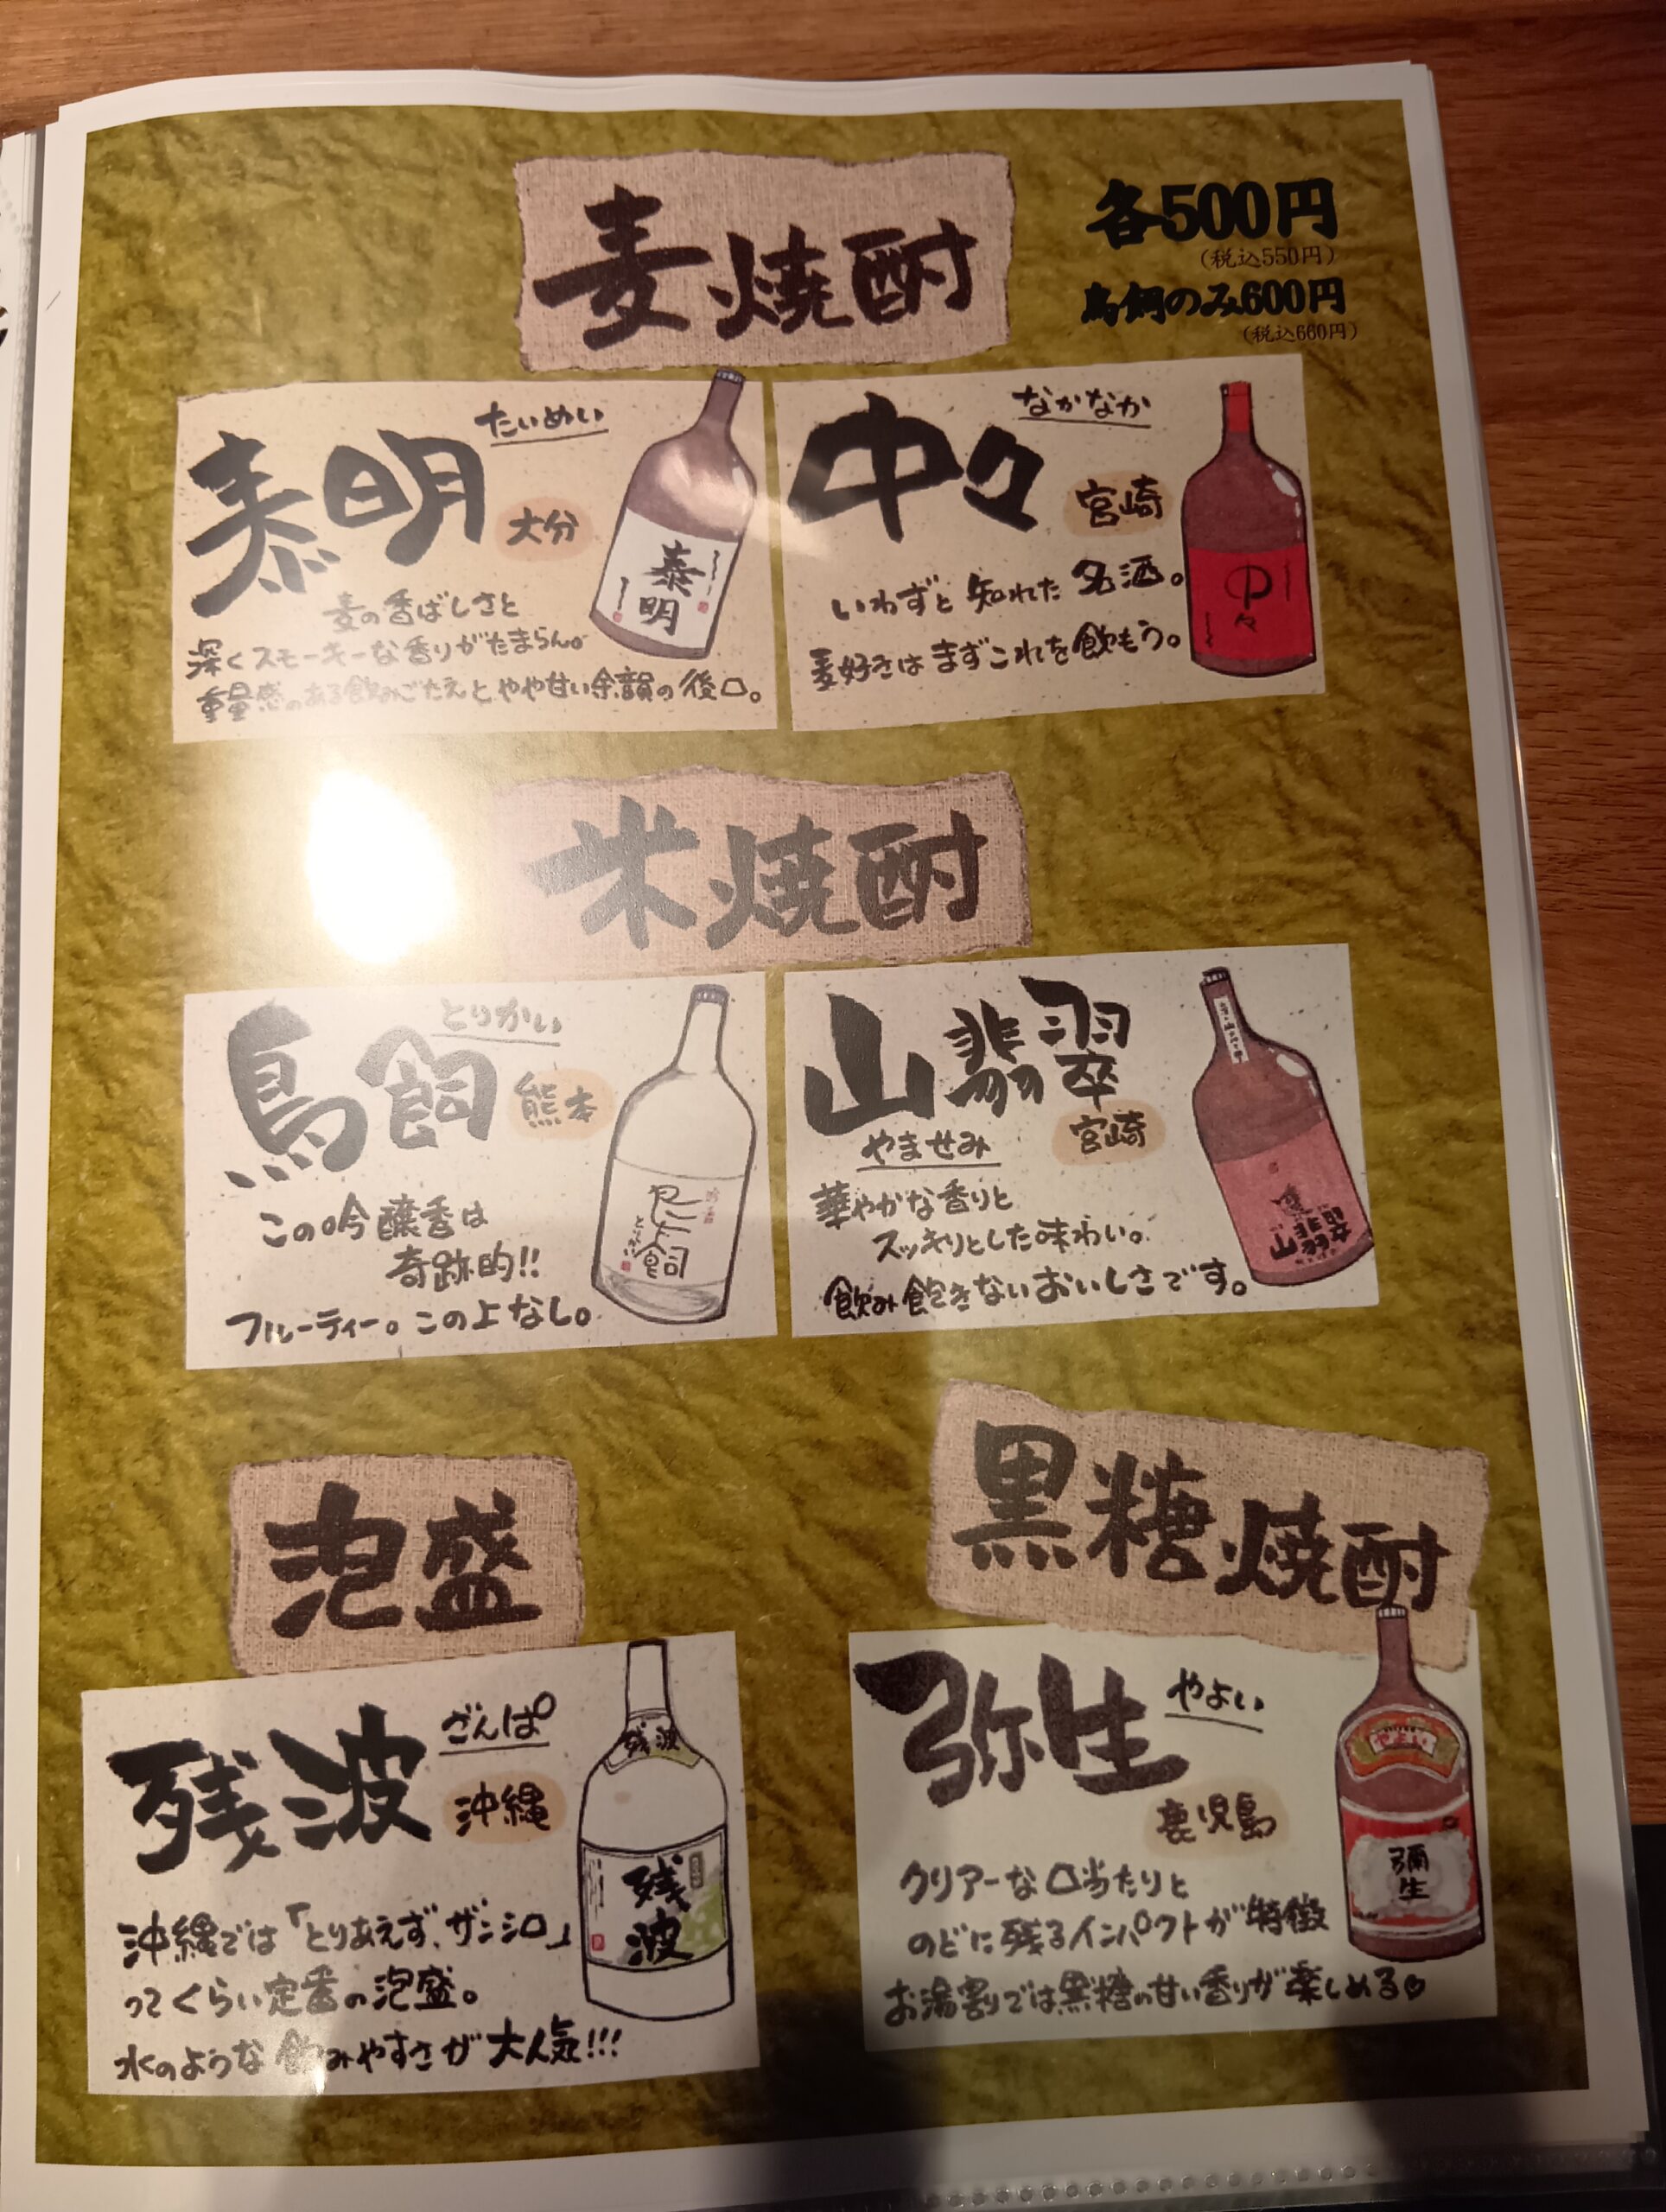 麦焼酎
各500円
(税込550円)
鳥飼のみ600円
(税込660円)
泰明
たいめい
大分
麦の香ばしさと
深くスモーキーな香りがたまらん。
重量感のある飲みごたえとやや甘い余韻の後口。
泰明
中々
なかなか
宮崎
いわずと知れた名酒。
麦好きはまずこれを飲もう。
中々
米焼酎
鳥飼
とりかい
熊本
この吟醸香は
奇跡的!!
フルーティー。この上なし。
鳥飼
山翡翠
やませみ
宮崎
華やかな香りと
スッキリとした味わい。
飲み飽きないおいしさです。
山翡翠
泡盛
残波
ざんぱ
沖縄
沖縄では「とりあえず、ザンシロ」
ってくらい定番の泡盛。
水のような飲みやすさが大人気!!!
残波
残波
黒糖焼酎
弥生
やよい
鹿児島
クリアーな口当たりと
のどに残るインパクトが特徴
お湯割りでは黒糖の甘い香りが楽しめる♡
彌生